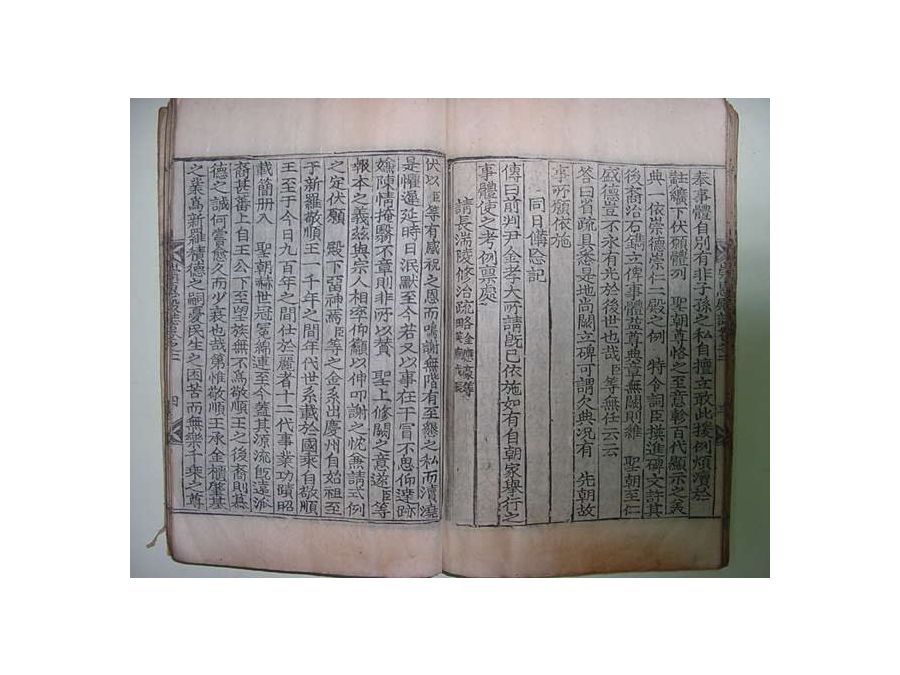 奉事體自別有非子孫之私自擅立敢此援例煩瀆於
註纊下伏願體列 聖朝尊恰之至意軫百代顯示之義
典 依崇德崇仁二殿之例 特令詞臣撰進碑文許其
後裔治石鐫立俾事體益尊典章無闕則雖 聖朝至仁
盛德豈不永有光於後世也哉臣等無任云云
答曰省疏具悉是地尚闕立碑可謂欠典況有 先朝故
事所願依施
同日傋忩記
傳曰前判尹金孝大所請旣已依施如有自朝家舉行之
事體使之考例禀處
請長湍陵修治疏略
伏以臣等有感祝之恩而鳴謝無階有至懇之私而瀆撓
是懼遷延時日泯默至今若又以事在干冒不思仰達跡
嫌陳情掩翳不章則非所以賛 聖上修闕之意遂臣等
報本之義玆與宗人相率仰籲以伸叩謝之忱兼請式例
之定伏願 殿下留神焉臣等之金系出慶州自始祖至
于新羅敬順王一千年之間年代世系載於國乘自敬順
王至于今日九百年之間仕於麗者十二代事業功蹟昭
載簡冊入 聖朝赫世冠冕綿連至今蓋其源流旣遠派
裔甚蕃上自王公下至望族無不爲敬順王之後裔則慕
德之誠何嘗愈久而少衰也哉第惟敬順王承金櫃肇基
之業爲新羅積德之嗣憂民生之困苦而無樂千乘之尊
崇惠殿誌卷之二
四